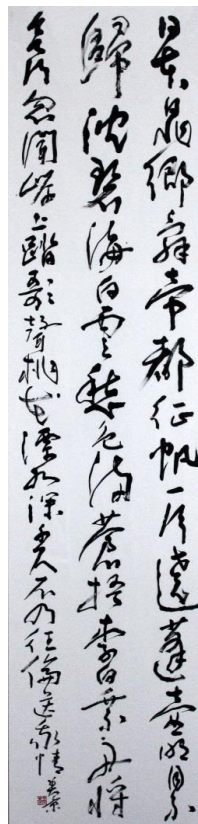 日本晁卿辭帝都征帆一片遶蓬壺明月不
歸沈碧海白雲愁色滿蒼梧李白乘舟將
欲行忽聞岸上踏歌聲桃花潭水深千尺不及汪倫送我情